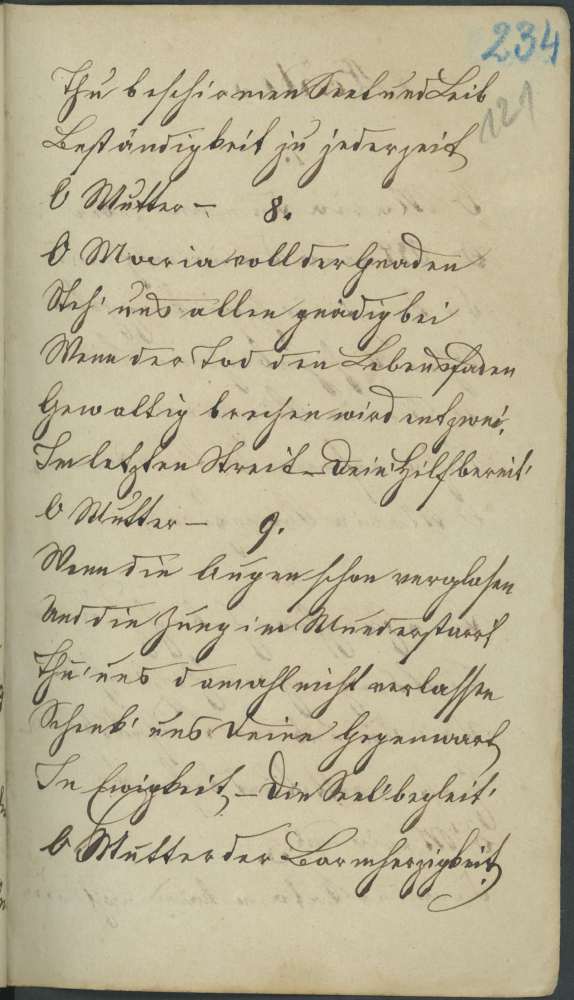 234
121
Thu beschirmen Seel und Leib
Beständigkeit zu jederzeit
O Mutter – 8.
O Maria voll der Gnaden
Steh' uns allen gnädig bei
Wenn der Tod den Lebensfaden
Gewaltig brechen wird entzwei,
Im letzten Streit – Dein Hilf bereit'
O Mutter – 9.
Wenn die Augen schon verglasen
Und die Zung im Mund erstarrt
Thu' uns damahl nicht verlassen
Schenk' uns deine Gegenwart
In Ewigkeit – Die Seel' begleit'
O Mutter der Barmherzigkeit.